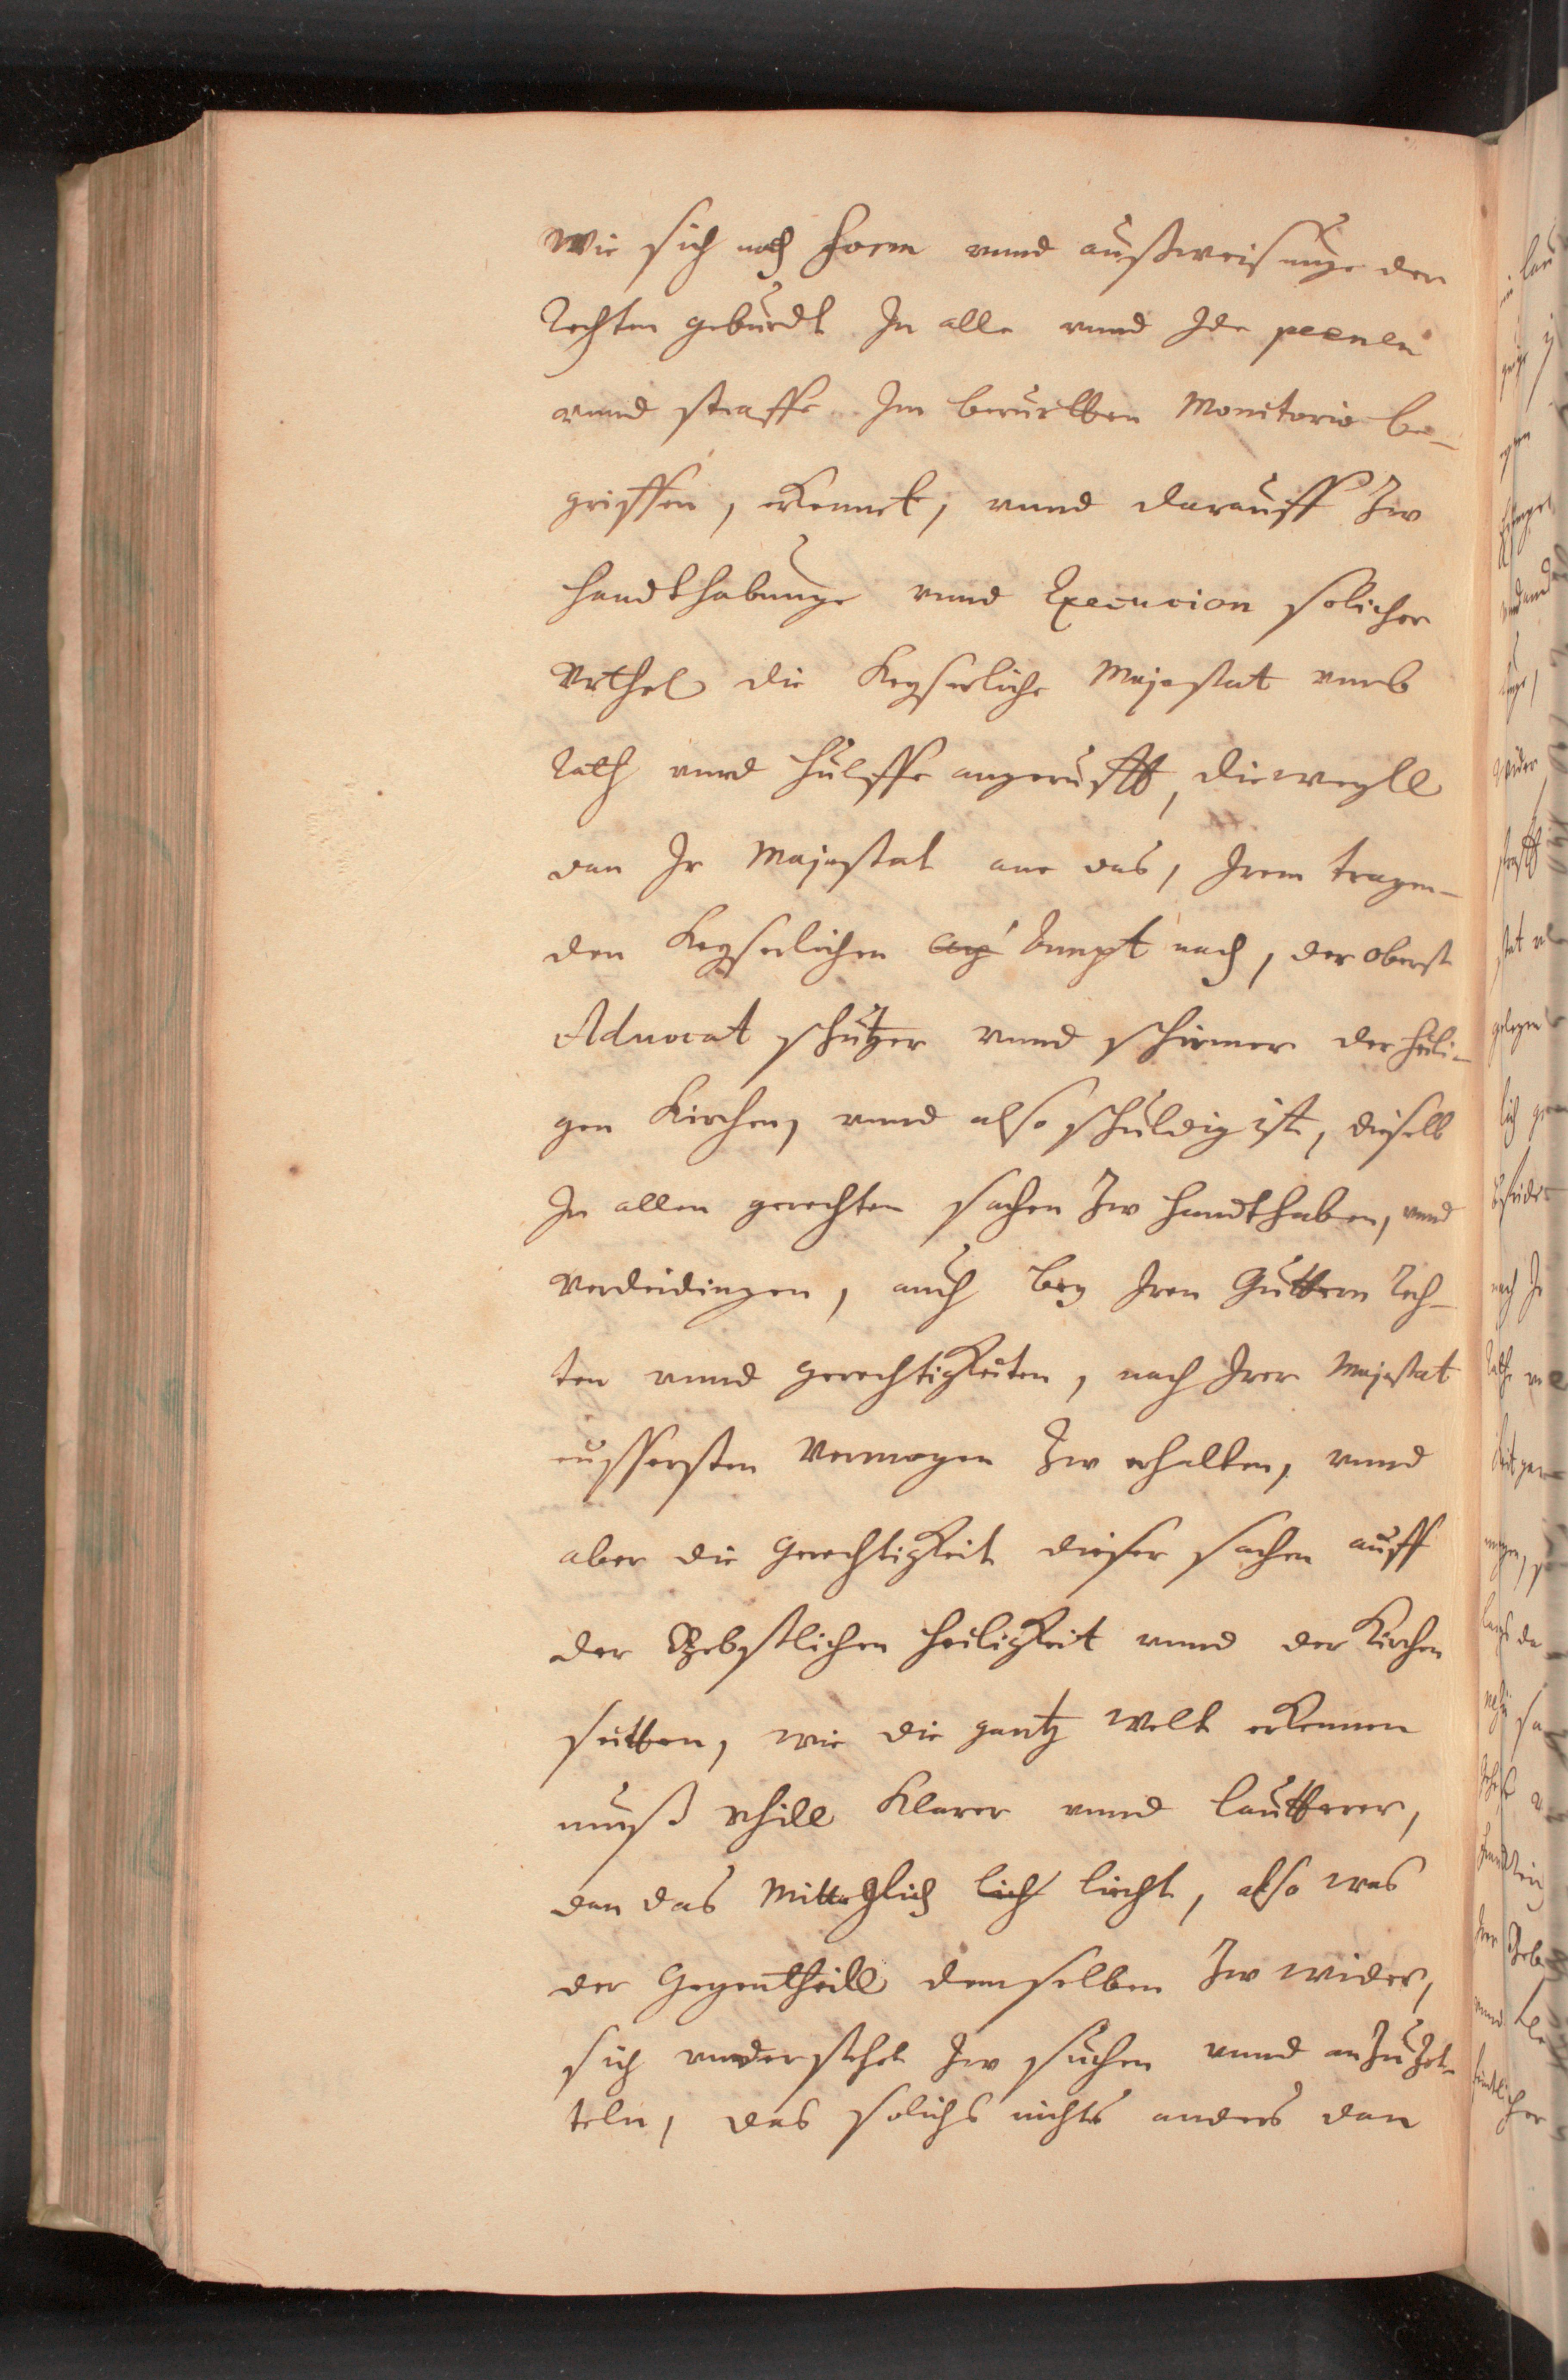 Wie sich nach Form vnnd außweisunge der
Rechten geburdt In alle vnnd Jde peenen
vnnd straffe Im berurtten Monitorio be-
griffen, erkennet, vnnd darauff Zw
handthabunge vnnd Execucion solicher
Vrthel die Keyserliche Majestat vmb
Rath vnnd hulffe angerufft, dieweyll
dan Ir Majestat ane das, Irem tragen-
den Keyserlichen Ampt nach, der oberst
Aduocat schutzer vnnd schirmer der heili-
gen Kirchen, vnnd also schuldig ist, dieselb
In allen gerechten sachen Zw handthaben, vnnd
verdeidingen, auch bey Iren Guttern Rech-
ten vnnd gerechtigkeiten, nach Irer Majestat
eussersten Vermogen Zw erhalten, vnnd
aber die Gerechtigkeit dieser sachen auff
der Bebstlichen heiligkeit vnnd der Kirchen
seitten, wie die gantz Welt erkennen
muß vhill Klarer vnnd lautterer,
dan das Mittaglich lich liecht, also was
der Gegentheill demselben Zw wider,
sich vnderstehet Zw suchen vnnd anZuZet-
teln, das solichs nichts anders dan